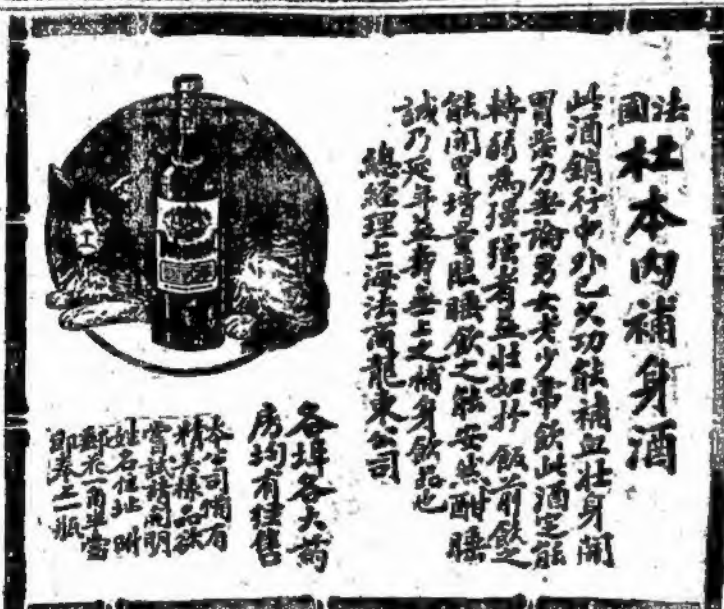 法國
杜本內補身酒
此酒銷行中外已久功能補血壯身開
胃增力無論男女老少常飲此酒定能
轉弱為強強者益壯如於飯前飲之
能開胃增量臨睡飲之能安然酣睡
誠乃延年益壽無上之補身飲品也
總經理上海法商龍東公司
各埠各大药
房均有經售
本公司備有
精美樣品欲
嘗試請開明
姓名住址附
郵花一角
即奉上一瓶